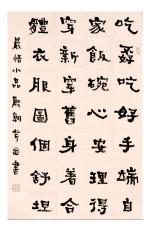 吃孬吃好手端自
家飯碗心安理得
穿新穿舊身著合
體衣服圖個舒坦
晨悟小品